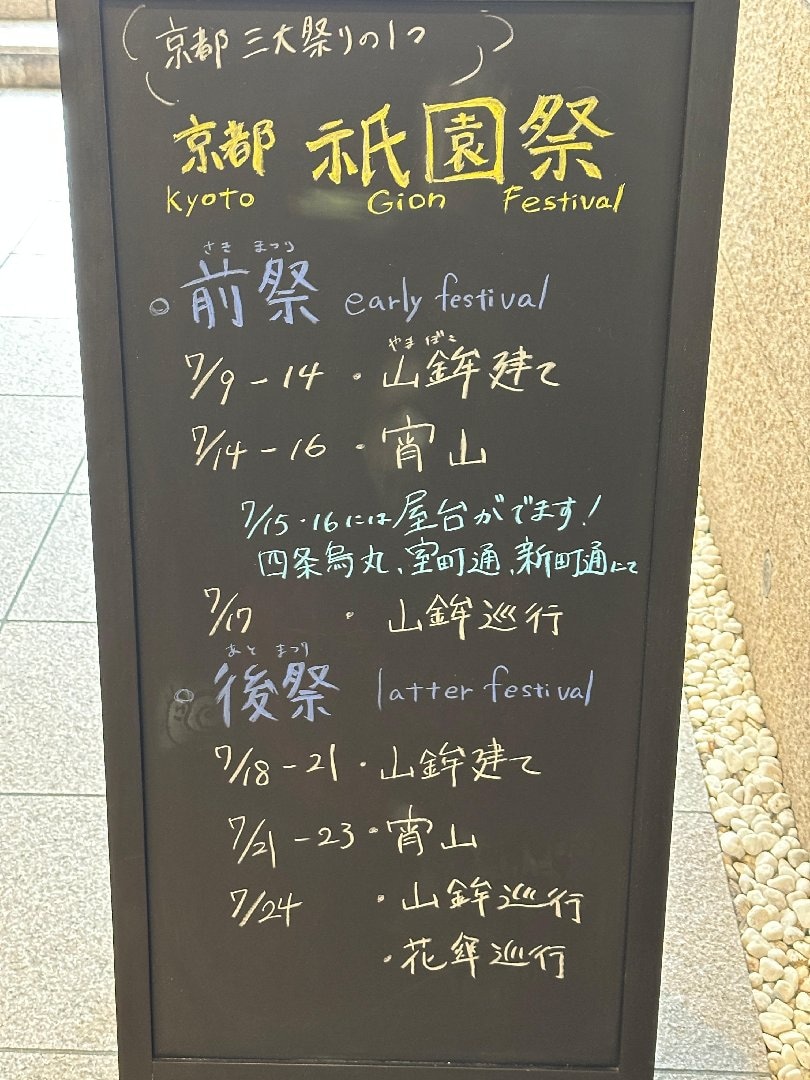 京都三大祭りの1つ
京都 祇園祭
Kyoto Gion Festival
さき まつり
前祭 early festival
やま ぼこ
7/9-14・山鉾建て
7/14-16・宵山
7/15・16には屋台がでます!
四条烏丸、室町通、新町通にて
7/17・山鉾巡行
あと まつり
後祭 latter festival
7/18-21・山鉾建て
7/21-23・宵山
7/24・山鉾巡行
・花傘巡行